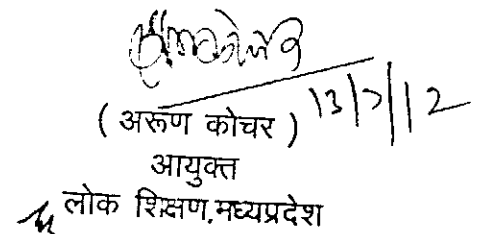 ( अरूण कोचर ) 13/7/12
आयुक्त
लोक शिक्षण,मध्यप्रदेश